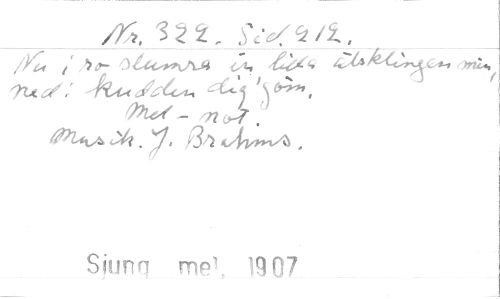 Nr. 322. Sid. 212.
Nu i ro slumra in lilla älsklingen min,
ned i kudden dig göm.
Mel-not.
Musik. J. Brahms.
Sjung mel. 1907